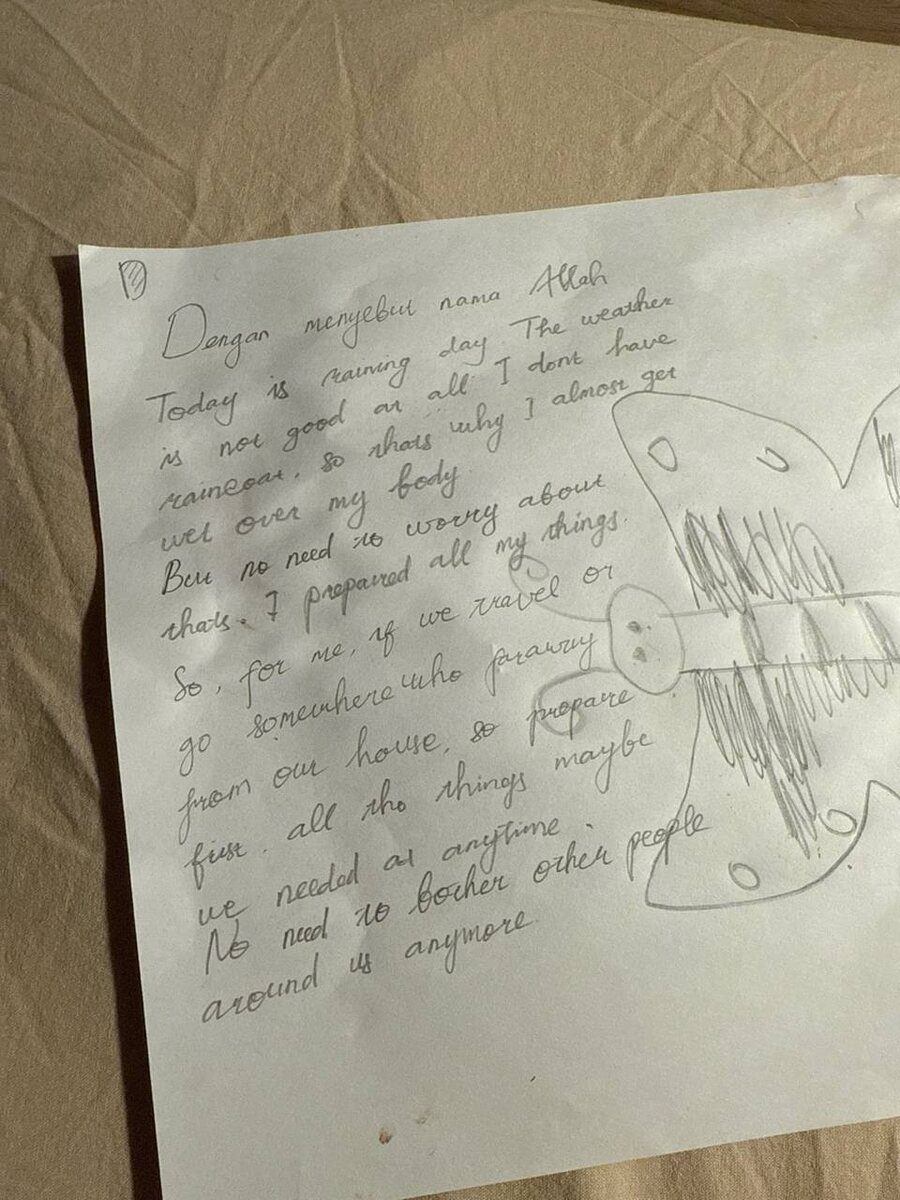 Dengan menyebut nama Allah
Today is raining day. The weather
is not good at all I dont have
raincoat, so thats why I almost get
wet over my body.
But no need to worry about
thats. I prepared all my things.
So, for me, if we travel or
go somewhere who
from our house, so prepare
first. all the things maybe
we needed at anytime.
No need to bother other people
around us anymore.